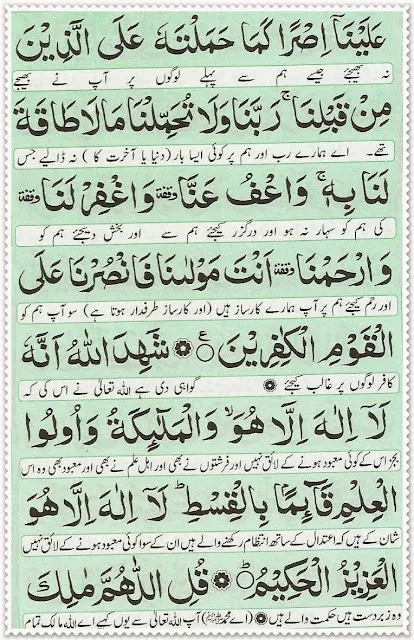 عَلَيْنَآ اِصْرًا كَمَا حَمَلْتَهٗ عَلَى الَّذِيْنَ
نہ بھیجئے جیسے ہم سے پہلے لوگوں پر آپ نے بھیجے
مِنْ قَبْلِنَا ۚ رَبَّنَا وَلَا تُحَمِّلْنَا مَا لَا طَاقَةَ
تھے۔ اے ہمارے رب اور ہم پر کوئی ایسا بار (دنیا یا آخرت کا) نہ ڈالیے جس
لَنَا بِهٖ ۚ وَاعْفُ عَنَّا وقفۃ وَاغْفِرْ لَنَا وقفۃ
کی ہم کو سہار نہ ہو اور درگزر کیجئے ہم سے اور بخش دیجئے ہم کو
وَارْحَمْنَا وقفۃ اَنْتَ مَوْلٰىنَا فَانْصُرْنَا عَلَى
اور رحم کیجئے ہم پر آپ ہمارے کارساز ہیں (اور کارساز طرفدار ہوتا ہے) سو آپ ہم کو
الْقَوْمِ الْكٰفِرِيْنَ ۝ ع شَهِدَ اللّٰهُ اَنَّهٗ
کافر لوگوں پر غالب کیجئے گواہی دی ہے اللہ تعالیٰ نے اس کی کہ
لَآ اِلٰهَ اِلَّا هُوَ ۙ وَالْمَلٰٓئِكَةُ وَاُولُوا
بجز اس کے کوئی معبود ہونے کے لائق نہیں اور فرشتوں نے بھی اور اہل علم نے بھی اور معبود بھی وہ اس
الْعِلْمِ قَآئِمًۢا بِالْقِسْطِ ؕ لَآ اِلٰهَ اِلَّا هُوَ
شان کے ہیں کہ اعتدال کے ساتھ انتظام رکھنے والے ہیں ان کے سوا کوئی معبود ہونے کے لائق نہیں
الْعَزِيْزُ الْحَكِيْمُ ؕ ۝ قُلِ اللّٰهُمَّ مٰلِكَ
وہ زبردست ہیں حکمت والے ہیں (اے محمد ﷺ) آپ اللہ تعالیٰ سے یوں کہیے اے اللہ مالک تمام